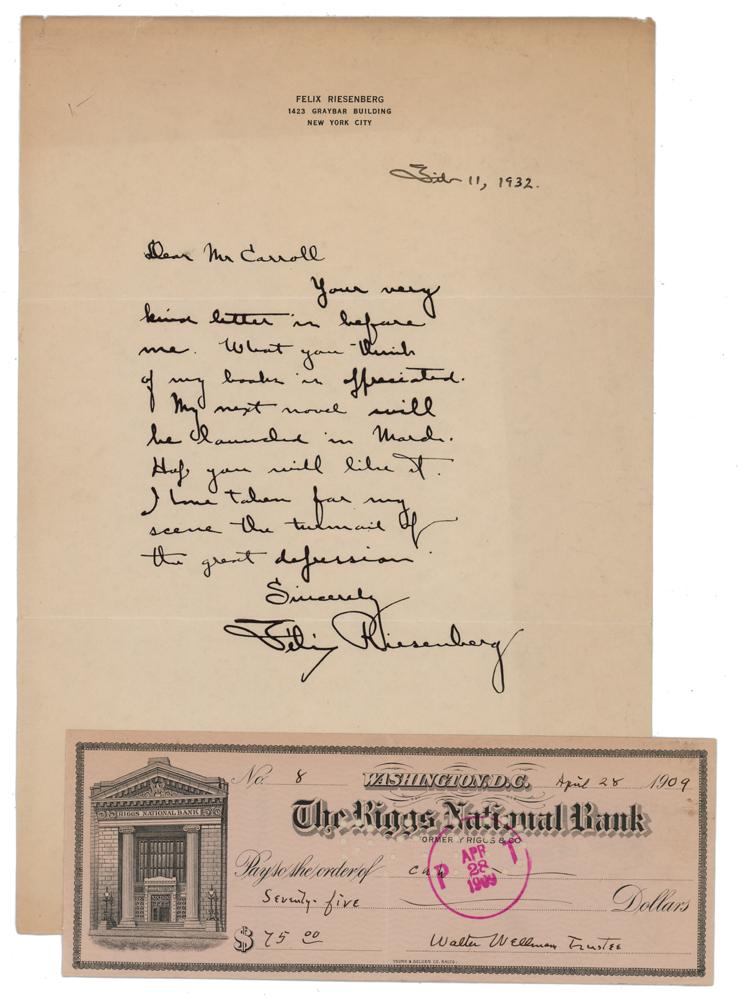 FELIX RIESENBERG
1423 GRAYBAR BUILDING
NEW YORK CITY
Feb 11, 1932.
Dear Mr Carroll
Your very
kind letter is before
me. What you think
of my books is appreciated.
My next novel will
be launched in March.
Hope you will like it.
I have taken for my
scene the turmoil of
the great depression.
Sincerely
Felix Riesenberg
No. 8 WASHINGTON, D.C. April 28 1909
RIGGS NATIONAL BANK
The Riggs National Bank
FORMERLY RIGGS & CO
Pay to the order of
APR
28
1909
P T
Seventy-five Dollars
$ 75 00
Walter Wellman Trustee